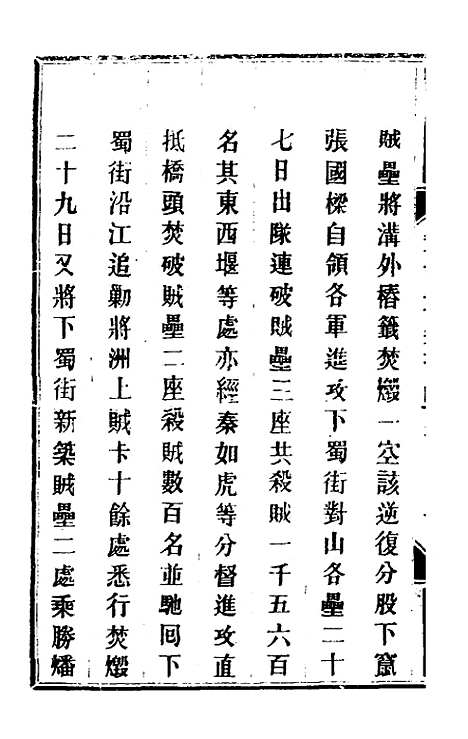 賊壘將溝外樁籤焚燬一空該逆復分股下竄
張國樑自領各軍進攻下蜀街對山各壘二十
七日出隊連破賊壘三座共殺賊一千五六百
名其東西堰等處亦經秦如虎等分督進攻直
抵橋頭焚破賊壘二座殺賊數百名並馳囘下
蜀街沿江追勦將洲上賊卡十餘處悉行焚燬
二十九日又將下蜀街新築賊壘二處乘勝燔